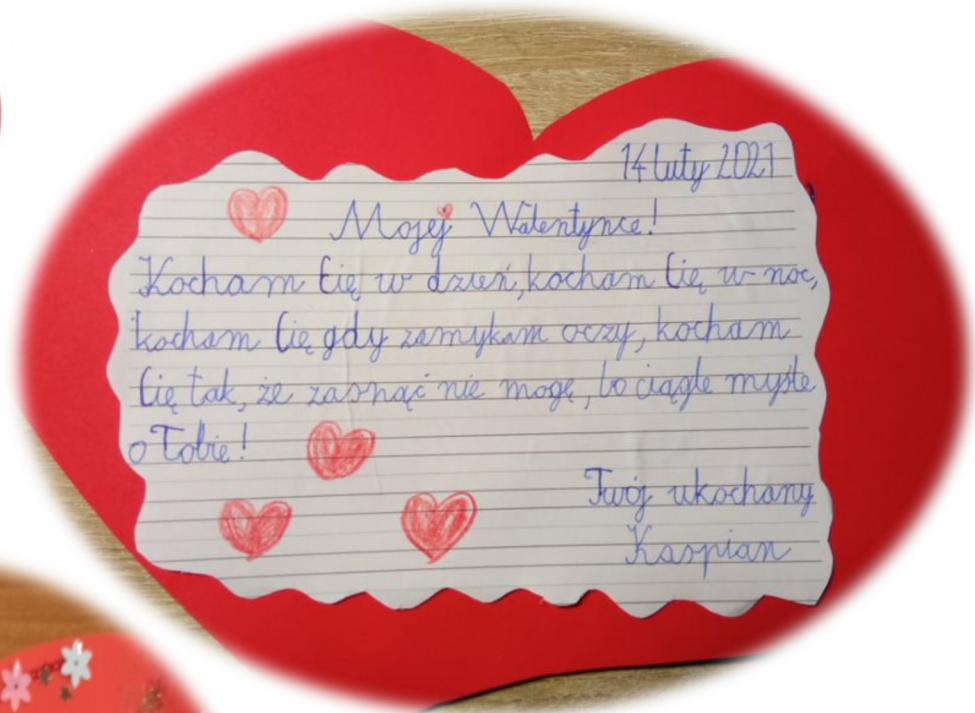 14 luty 2021
Mojej Walentynce!
Kocham Cię w dzień, kocham Cię w noc,
kocham Cię gdy zamykam oczy, kocham
Cię tak, że zasnąć nie mogę, bo ciągle myśle
o Tobie!
Twój ukochany
Kaspian